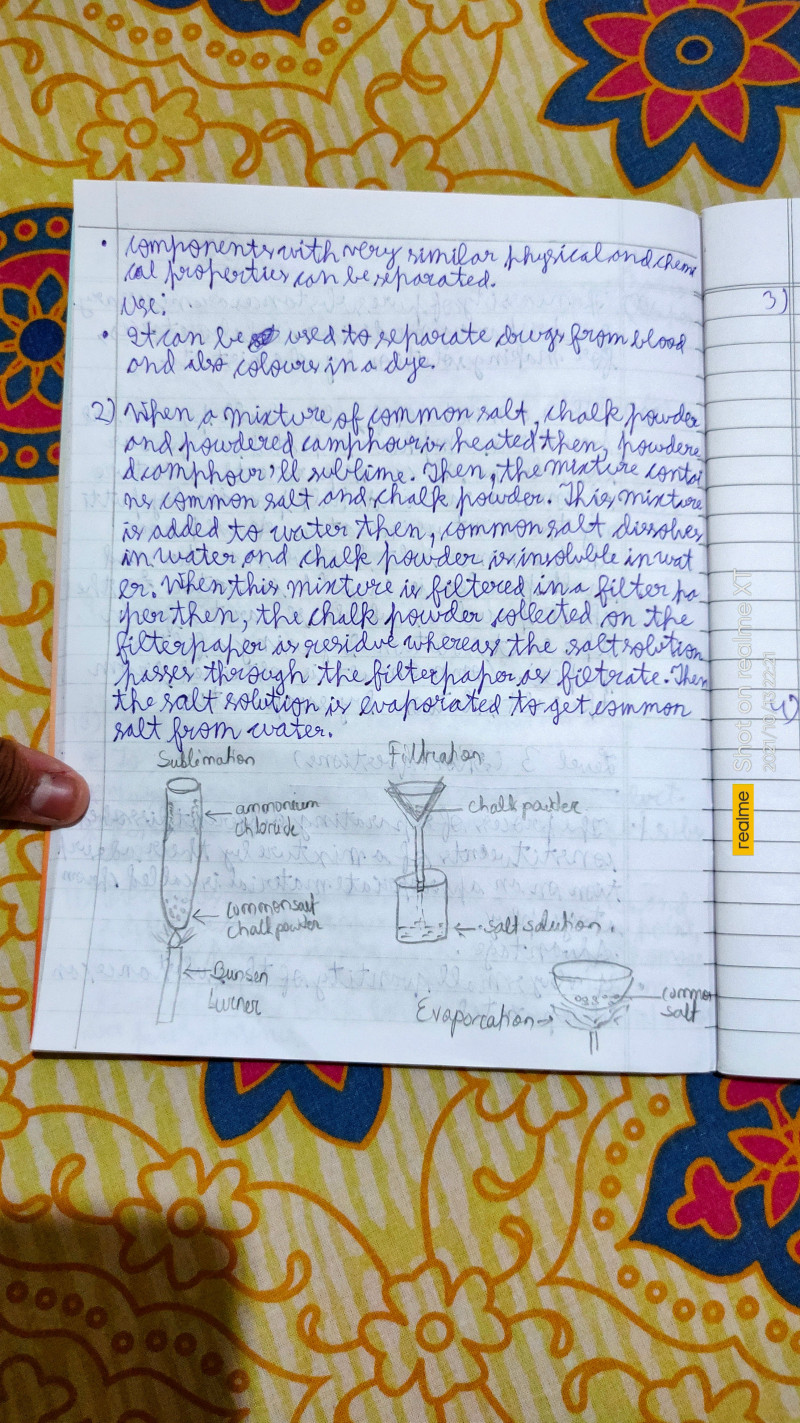 • components with very similar physical and chemi
cal properties can be separated.
Use:
• It can be used to separate drugs from blood
and also colours in a dye.
2) When a mixture of common salt, chalk powder
and powdered camphour is heated then, powdere
d camphour'll sublime. Then, the mixture contai
ns common salt and chalk powder. This mixture
is added to water then, common salt dissolves
in water and chalk powder is insoluble in wat
er. When this mixture is filtered in a filter pa
per then, the chalk powder collected on the
filter paper as residue whereas the salt solution
passes through the filter paper as filtrate. Then
the salt solution is evaporated to get common
salt from water.
Sublimation
ammonium
chloride
common salt
chalk powder
Bunsen
burner
Filtration
chalk powder
salt solution.
Evaporation
common
salt
3)
4)
realme
Shot on realme XT